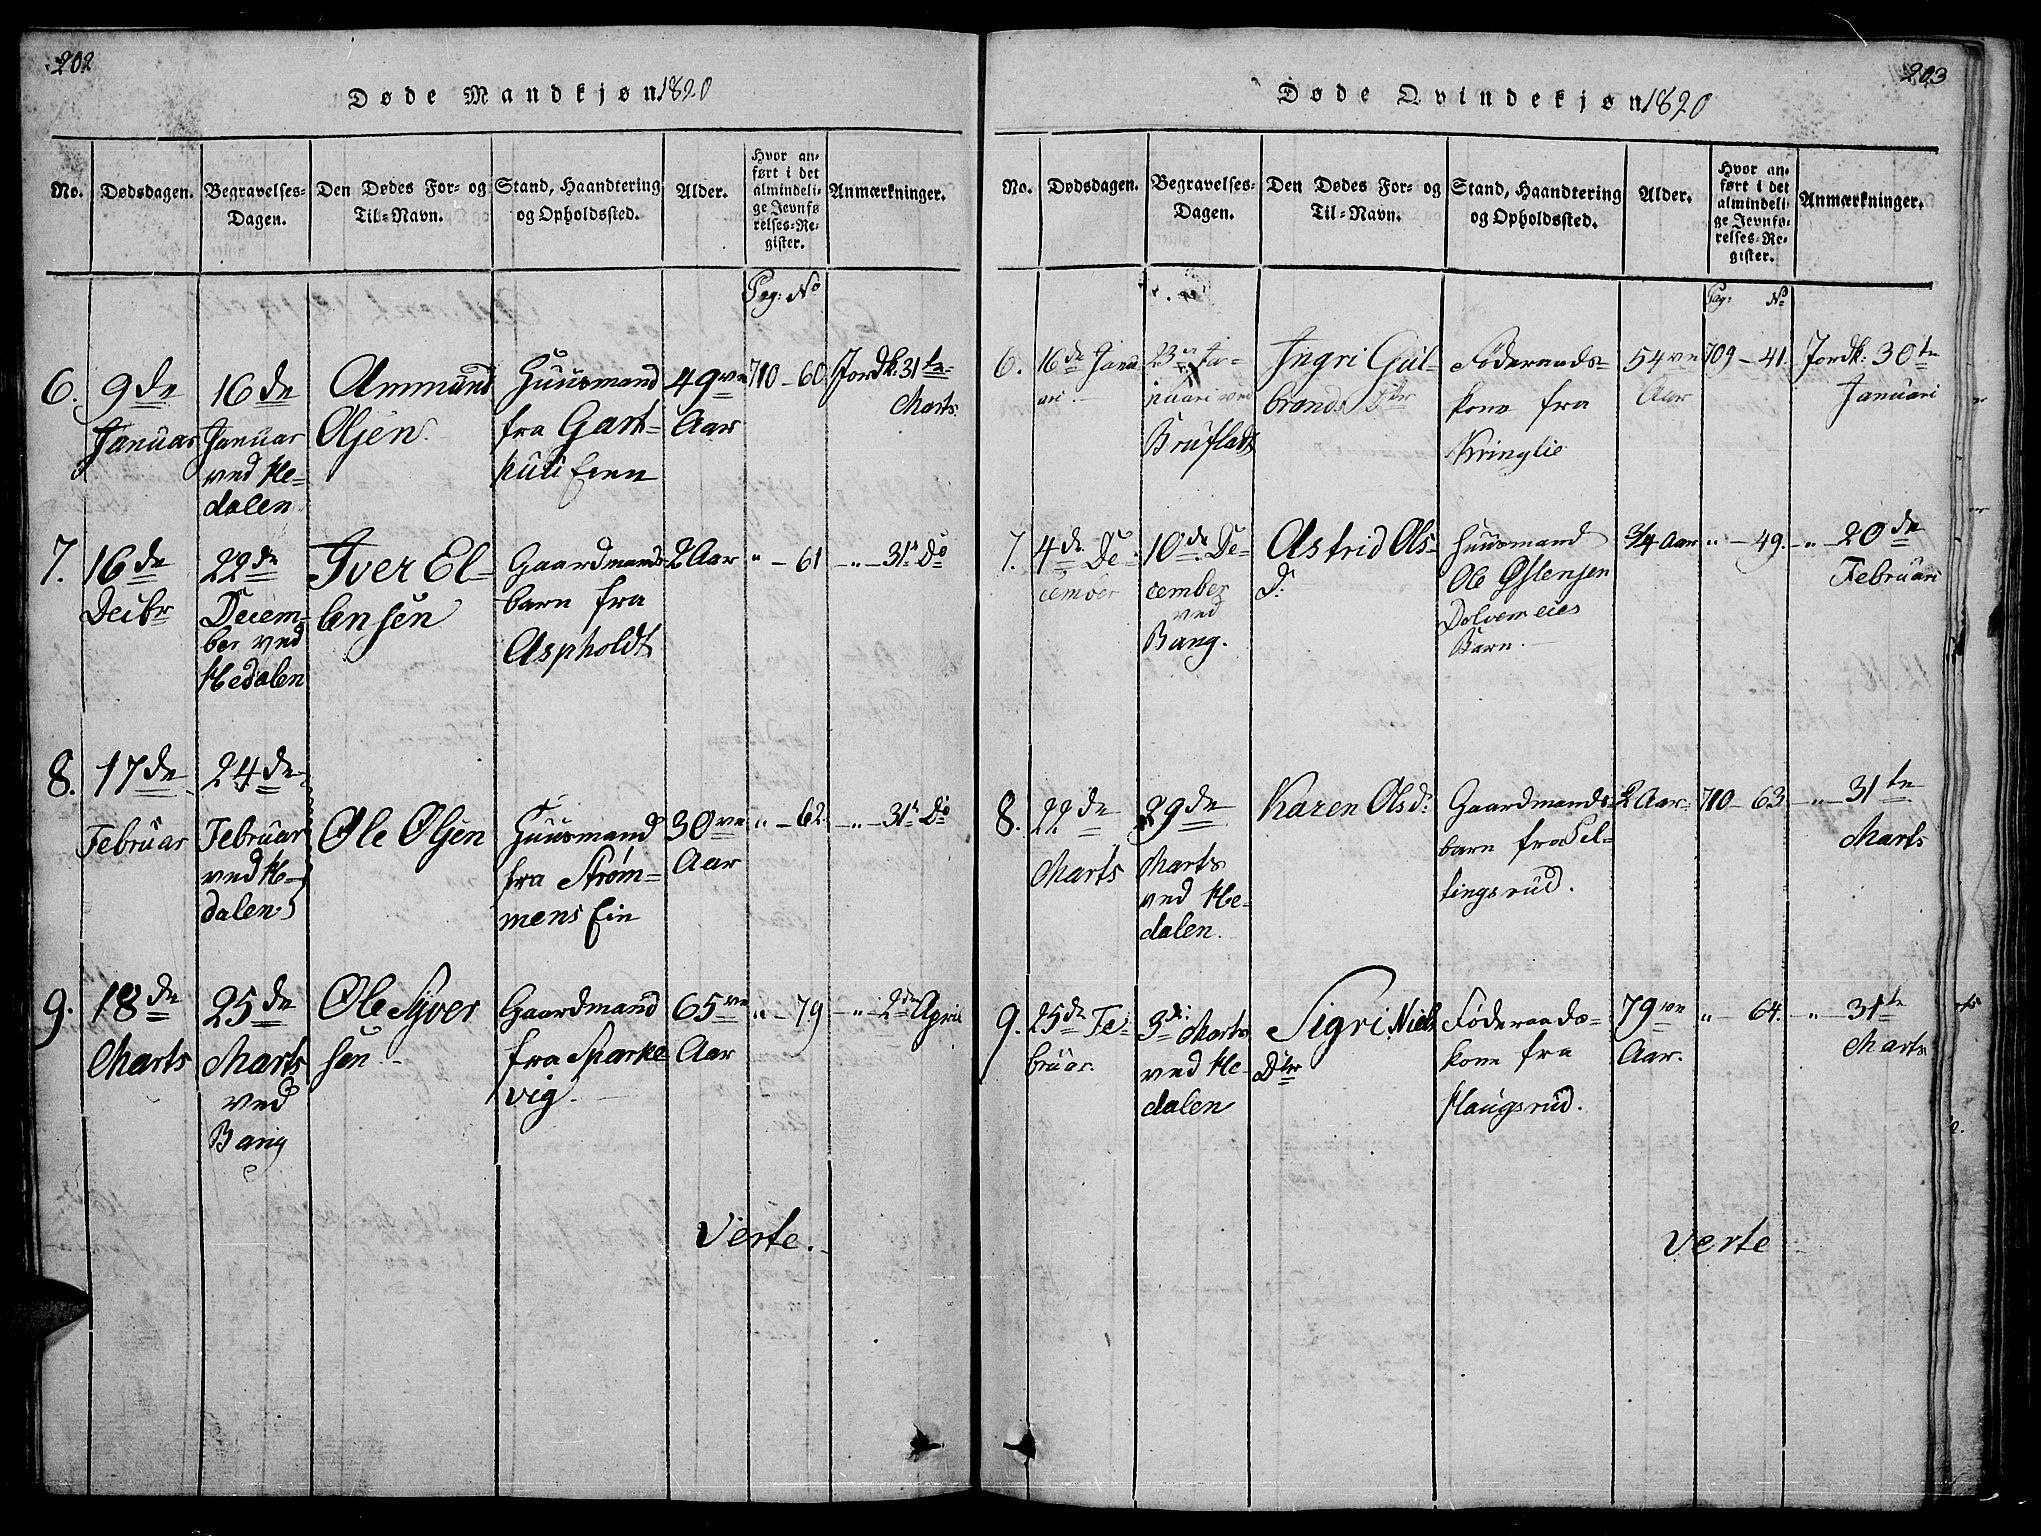 202
Døde Mandkjøn 1820
No.
Dødsdagen.
Begravelses-
Dagen.
Den Dødes For- og
Til-Navn.
Stand, Haandtering
og Opholdssted.
Alder.
Hvor an-
ført i det
almindeli-
ge Jevnfø
relses-Re-
gister.
Anmærkninger.
Pag: No
6.
9de
Januar
16de
Januar
ved He-
dalen
Ammund
Olsen.
Huusmand
fra Gart-
49ve
Aar
710 - 60.
Jordk: 31te
Marts.
7.
16de
Decbr
22de
Decem-
ber ved
Hedalen
Iver El-
lensen
Gaardmands
barn fra
Aspholdt
2 Aar
" - 61
- " - 31te Do
8.
17de
Februar
24de
Februar
ved He-
dalen.
Ole Olsen
Huusmand
fra Strøm-
mens Eie
30ve
Aar
" - 62.
- " - 31te Do
9.
18de
Marts
25de
Marts
ved
Bang
Ole Syver
sen
Gaardmand
fra Sparke
vig
65ve
Aar
" - 79
- " - 2den April
Verte.
203
Døde Qvindekjøn 1820
No.
Dødsdagen.
Begravelses-
Dagen.
Den Dødes For- og
Til-Navn.
Stand, Haandtering
og Opholdssted.
Alder.
Hvor an-
ført i det
almindeli-
ge Jevnfø-
relses-Re-
gister.
Anmærkninger.
Pag: No
6.
16de Janu
ari
23de Ja-
nuari ved
Brufladt
Ingri Gul-
brands Dtr
Føderaads-
kone fra
Kringlie
54ve
Aar
709 - 41.
Jordk: 30te
Januari
7.
4de De-
cember
10de De-
cember
ved
Bang.
Astrid Ols-
D:
Huusmand
Ole Østensen
Dolvemeies
Barn.
3/4 Aar
" - 49.
- " - 20de
Februari
8.
22de
Marts
29de
Marts
ved He-
dalen.
Karen Olsd:
Gaardmands
barn fra Pel-
lingsrud.
2 Aar
710 - 63.
- " - 31te
Marts
9.
25de Fe-
bruar.
3de Marts
ved He-
dalen
Sigri Niels
Dtr
Føderaads-
kone fra
Haugsrud.
79ve
Aar.
" - 64.
- " - 31te
Marts
Verte